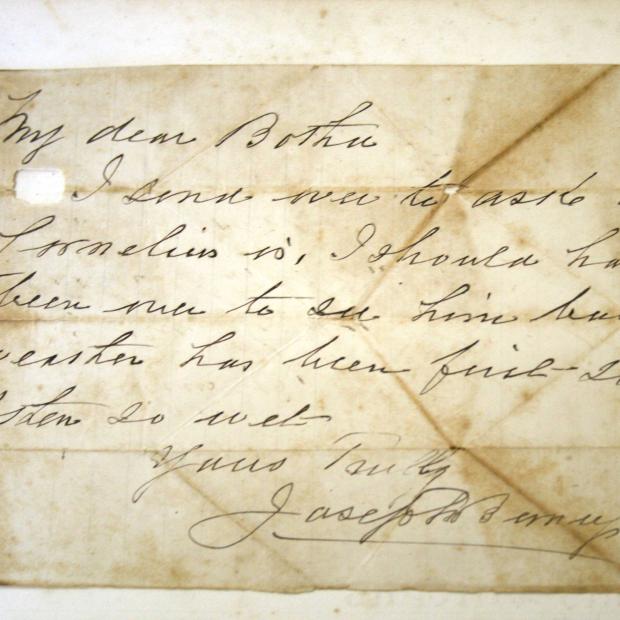 My dear Botha
I send over to ask
Cornelius is, I should ha
been over to see him bu
weaster has been first so
so wet
Yours Trully
Joseph